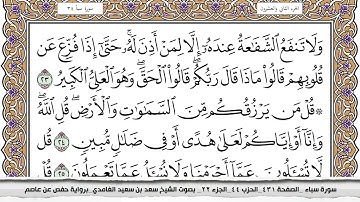 الجزء الثاني والعشرون
سورة سبأ ٣٤
وَلَا تَنفَعُ ٱلشَّفَٰعَةُ عِندَهُۥٓ إِلَّا لِمَنْ أَذِنَ لَهُۥ ۚ حَتَّىٰٓ إِذَا فُزِّعَ عَن
قُلُوبِهِمْ قَالُوا۟ مَاذَا قَالَ رَبُّكُمْ ۖ قَالُوا۟ ٱلْحَقَّ ۖ وَهُوَ ٱلْعَلِىُّ ٱلْكَبِيرُ ٢٣
۞ قُلْ مَن يَرْزُقُكُم مِّنَ ٱلسَّمَٰوَٰتِ وَٱلْأَرْضِ ۖ قُلِ ٱللَّهُ ۖ
وَإِنَّآ أَوْ إِيَّاكُمْ لَعَلَىٰ هُدًى أَوْ فِى ضَلَٰلٍ مُّبِينٍ ٢٤ قُل
لَّا تُسْـَٔلُونَ عَمَّآ أَجْرَمْنَا وَلَا نُسْـَٔلُ عَمَّا تَعْمَلُونَ ٢٥
سورة سباء _الصفحة ٤٣١_ الحزب ٤٤ _الجزء ٢٢ _بصوت الشيخ سعد بن سعيد الغامدي _برواية حفص عن عاصم